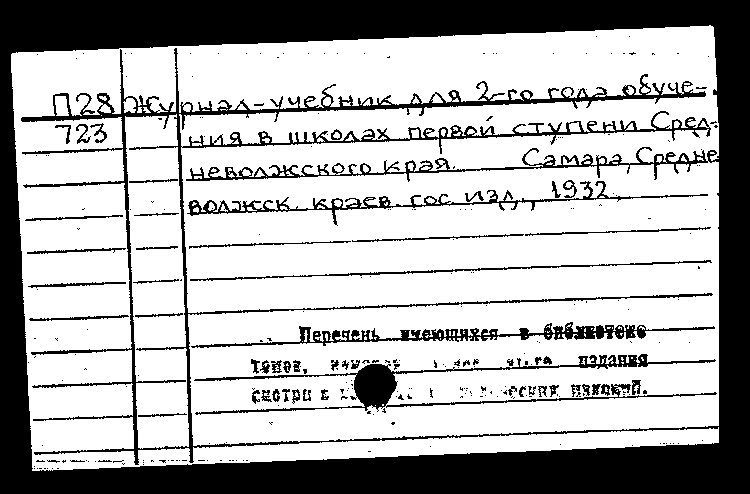 П28 Журнал-учебник для 2-го года обуче-
723 ния в школах первой ступени Сред-
неволжского края. Самара, Средне
волжск. краев. гос. изд., 1932.
Перечень имеющихся в библиотеке
томов, издания
смотри в